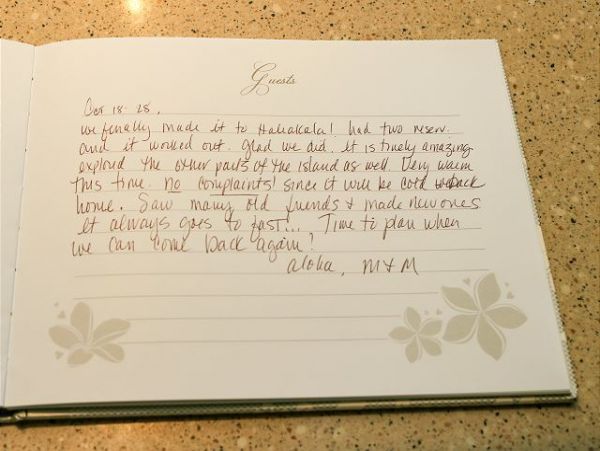 Guests
Oct 18-28,
we finally made it to Haliakala! had two reserv.
and it worked out. Glad we did. It is truely amazing
explored the other parts of the island as well. Very warm
this time. no complaints! since it will be cold back
home. Saw many old friends & made new ones
It always goes to fast!... Time to plan when
we can come back again!
aloha, M & M